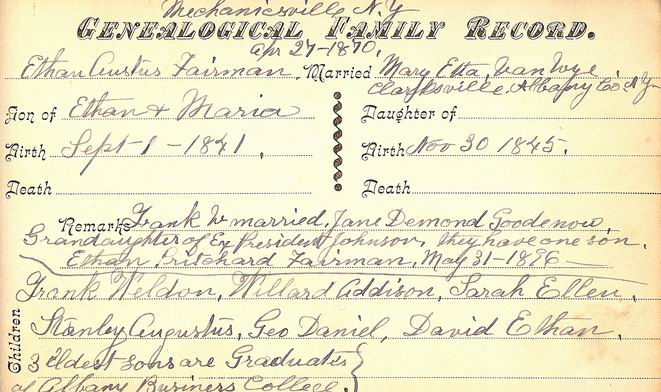 Mechanicsville N.Y
GENEALOGICAL FAMILY RECORD.
Apr 27-1870,
Ethan Austus Fairman, Married Mary Etta Van Wye,
Clarksville Albany Co N.Y-
Son of Ethan & Maria Daughter of
Birth Sept-1-1841, Birth Nov 30 1845.
Death Death
Remarks Frank W married, Jane Demond Goodenow,
Grandaughter of Ex President Johnson, they have one son.
Ethan Pritchard Fairman, May 31-1896-
Frank Weldon, Willard Addison, Sarah Ellen,
Children
Stanley Augustus, Geo Daniel, David Ethan,
3 eldest sons are Graduates
of Albany Business College.